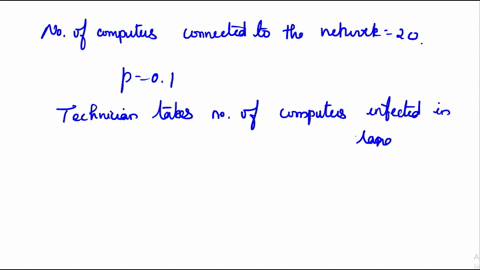 No. of computers connected to the network = 20.
p = 0.1
Technician takes no. of computers infected in